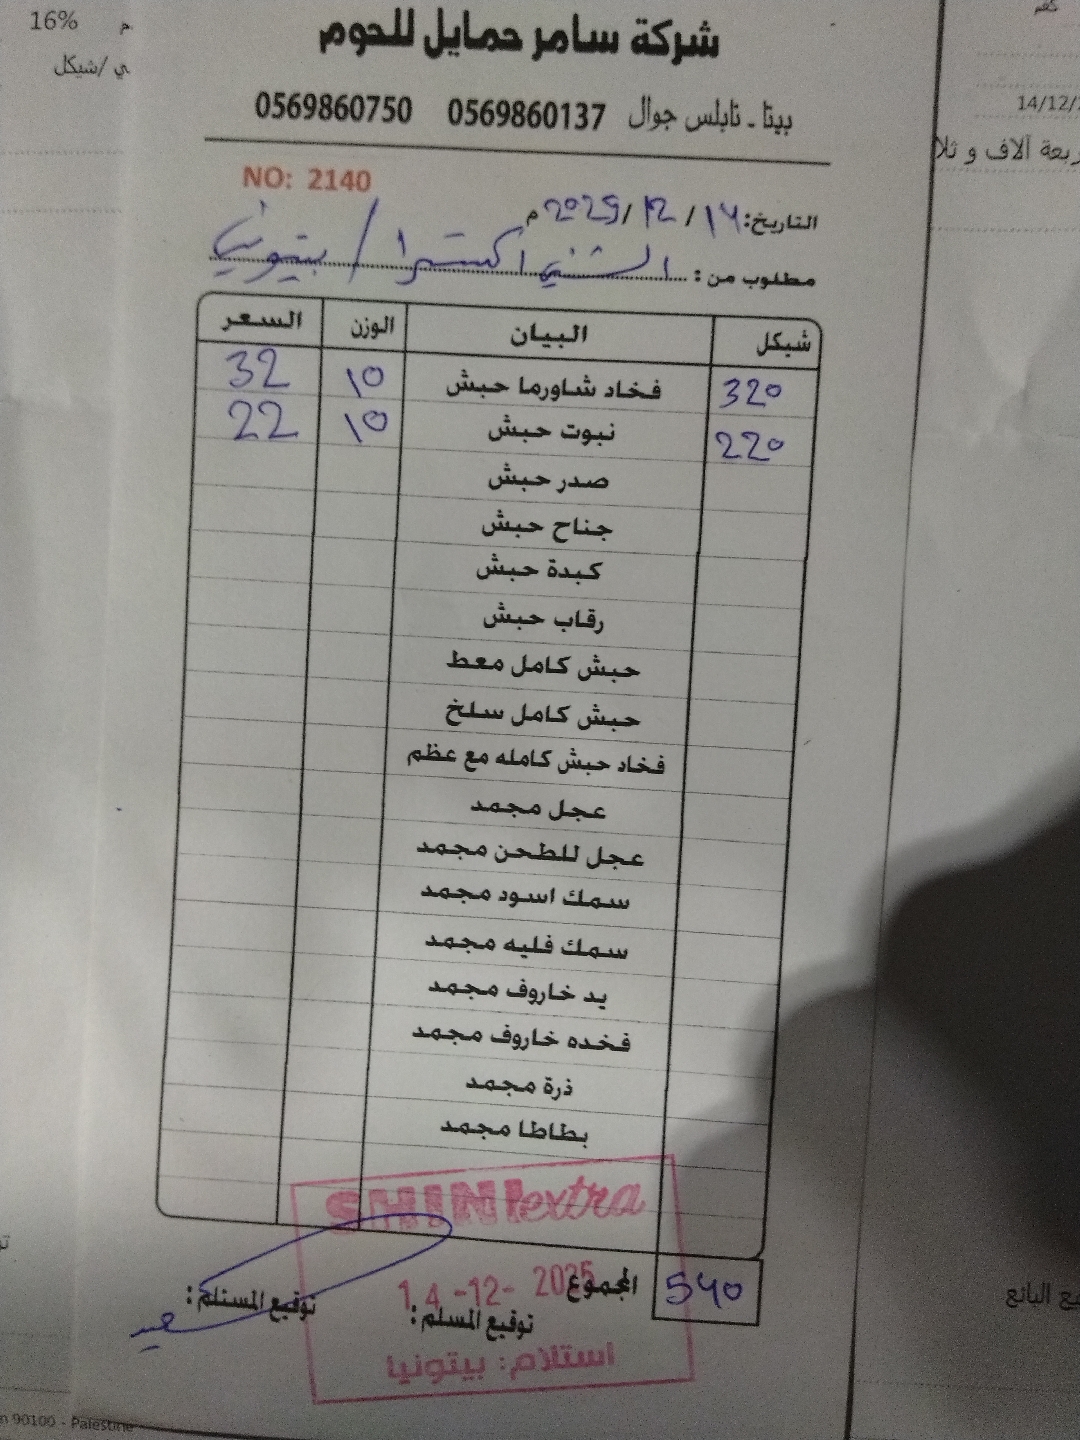 شركة سامر حمايل للحوم
بيتا - نابلس جوال 0569860137 0569860750
NO: 2140
التاريخ: 14 / 12 / 2025 م
مطلوب من : الشني اكسترا / بيتونيا
شيكل البيان الوزن السعر
320 فخاد شاورما حبش 10 32
220 نبوت حبش 10 22
صدر حبش
جناح حبش
كبدة حبش
رقاب حبش
حبش كامل معط
حبش كامل سلخ
فخاد حبش كامله مع عظم
عجل مجمد
عجل للطحن مجمد
سمك اسود مجمد
سمك فليه مجمد
يد خاروف مجمد
فخده خاروف مجمد
ذرة مجمد
بطاطا مجمد
SHINI extra
540 المجموع
14-12-2025
توقيع المسلم : توقيع المستلم :
سعيد
استلام: بيتونيا
16%
ي /شيكل
14/12/
ربعة آلاف و ثلا
ع البائع
90100 - Palestine